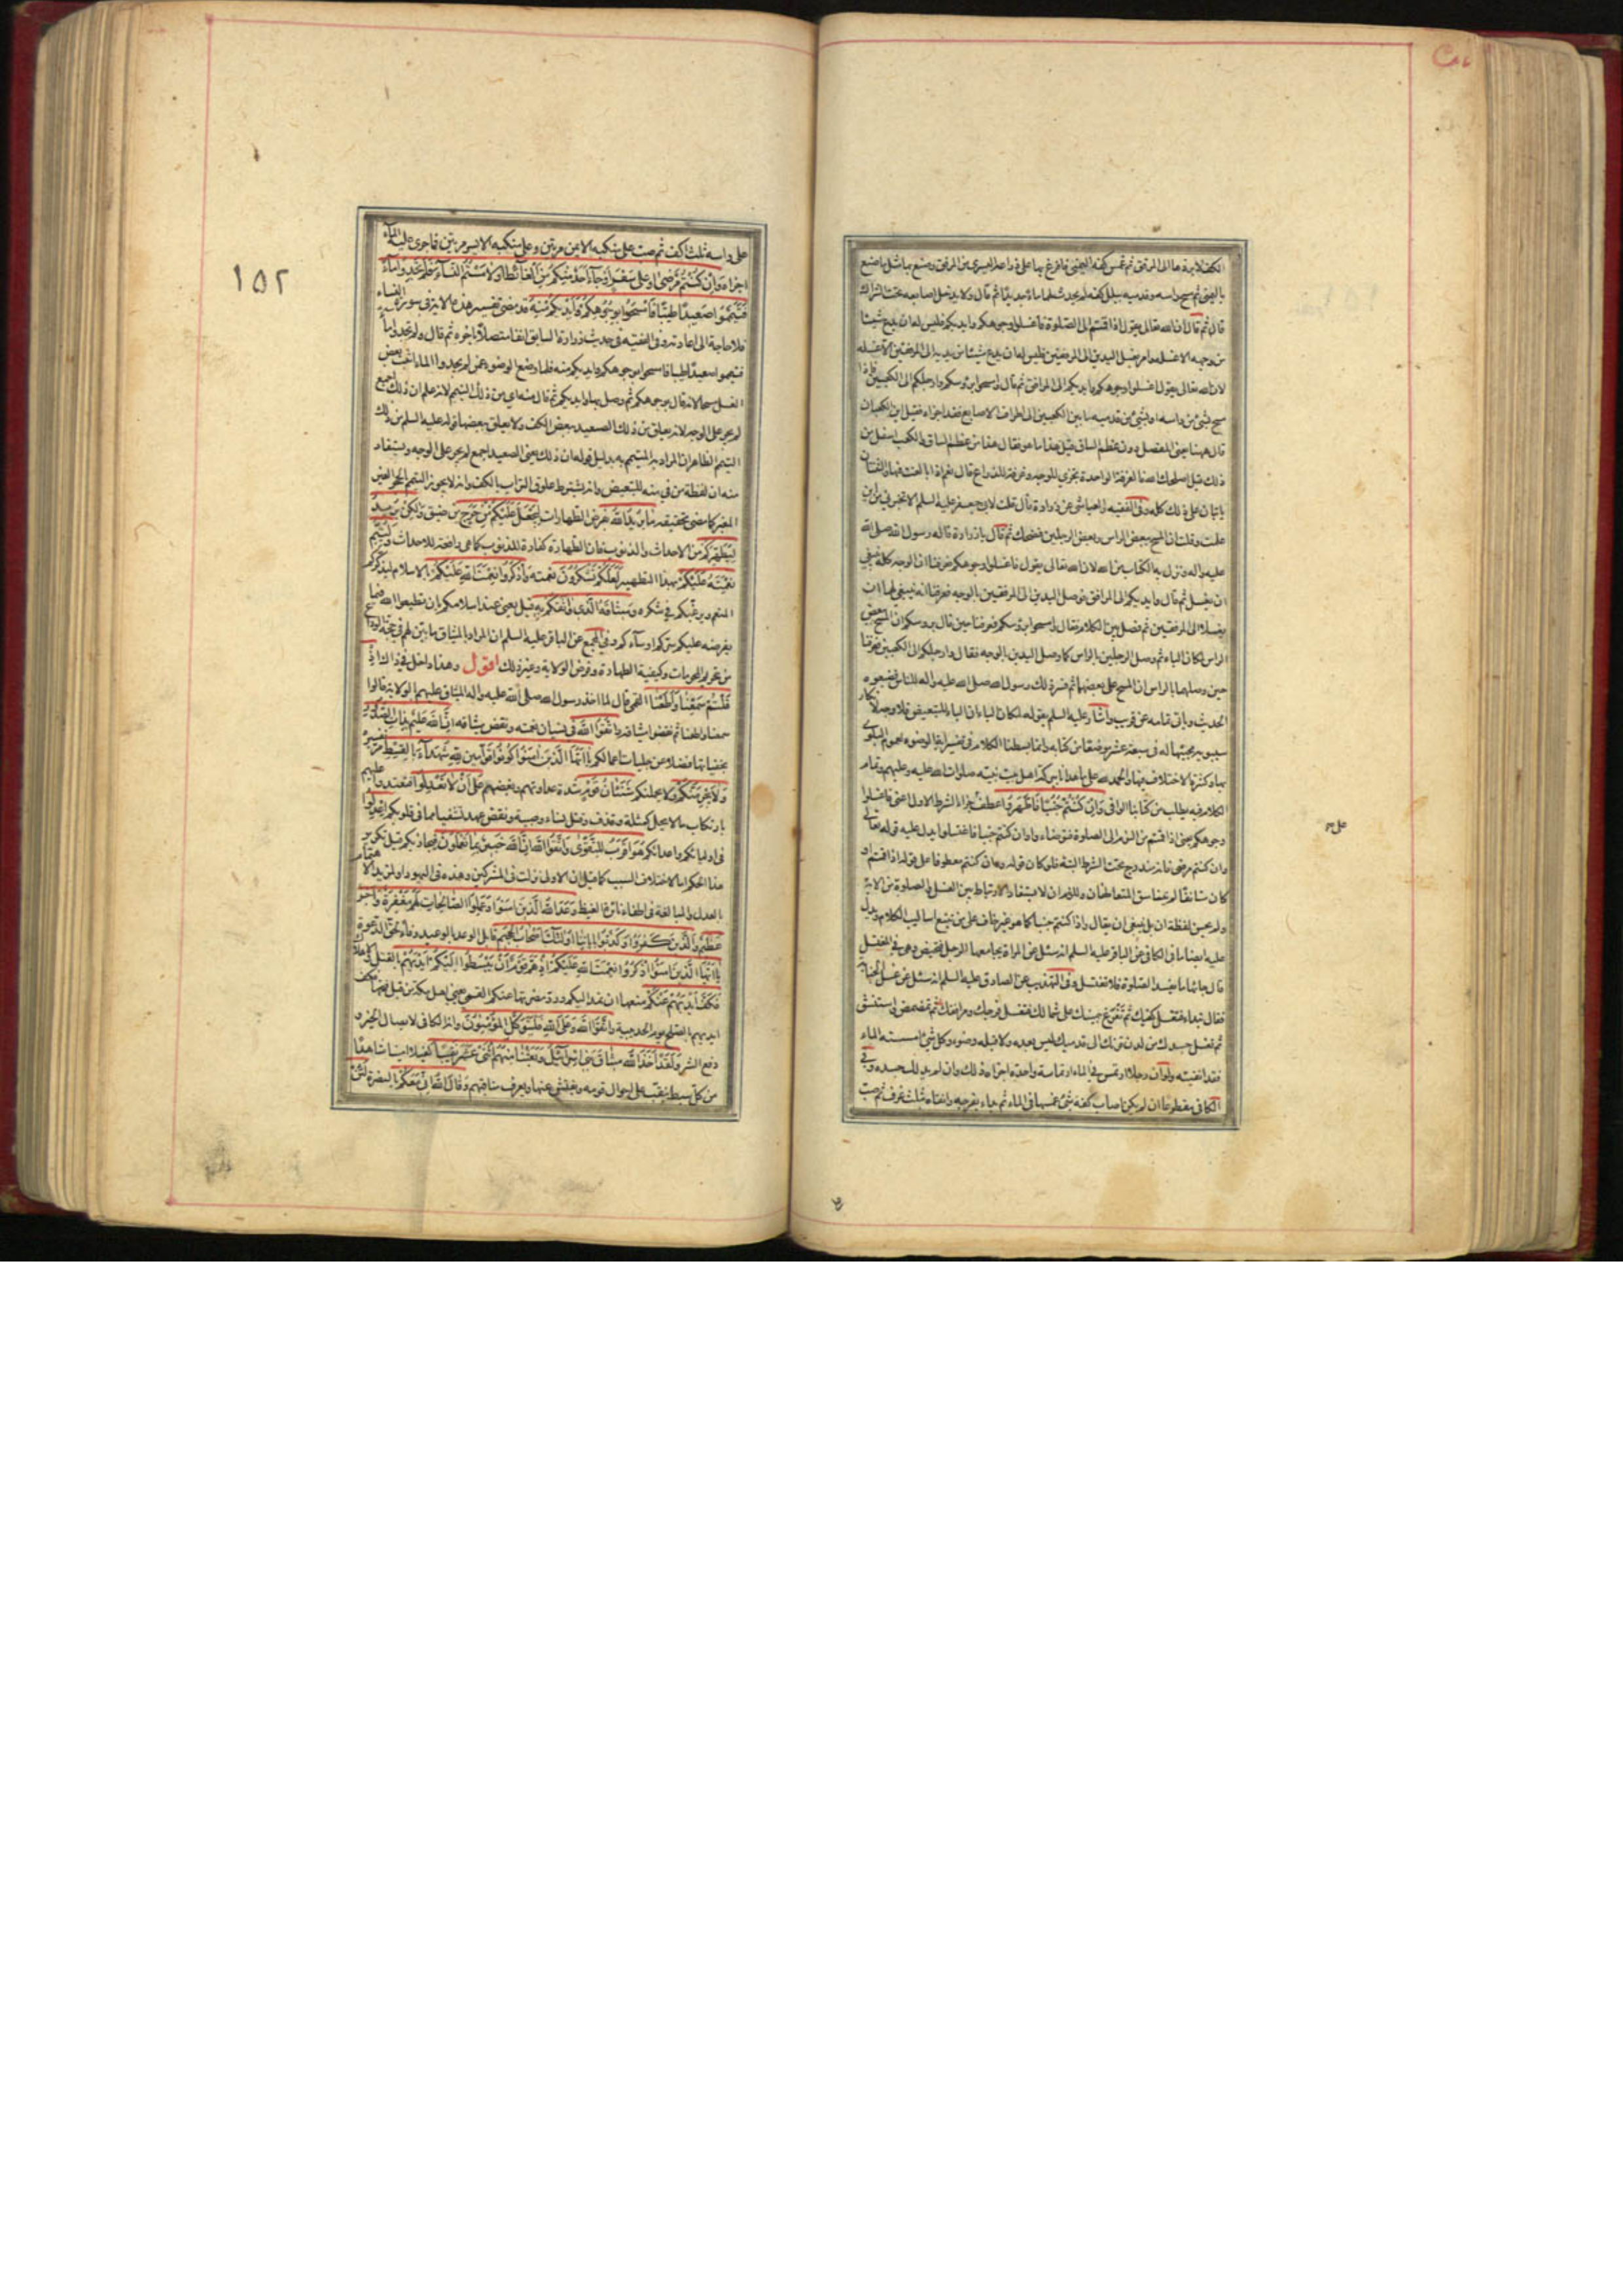 الكف لا يردها الى المرفق ثم غمس كفه اليمنى فافرغ بها على ذراعه اليسرى من المرفق وصنع بها مثل ما صنع
باليمنى ثم مسح راسه وقدميه ببلل كفه لم يحدث لهما ماء جديدا ثم قال ولا يدخل اصابعه تحت الشراك
قال ثم قال ان الله تعالى يقول اذا قمتم الى الصلوة فاغسلوا وجوهكم وايديكم فليس له ان يدع شيئا
من وجهه الا غسله وامر بغسل اليدين الى المرفقين فليس له ان يدع شيئا من يديه الى المرفقين الا غسله
لان الله تعالى يقول اغسلوا وجوهكم وايديكم الى المرافق ثم قال وامسحوا برؤسكم وارجلكم الى الكعبين فاذا
مسح بشئ من راسه او بشئ من قدميه ما بين الكعبين الى اطراف الاصابع فقد اجزاه فقيل اين الكعبان
قال ههنا يعنى المفصل دون عظم الساق فقيل هذا ما هو فقال هذا من عظم الساق والكعب اسفل من
ذلك فقيل اصلحك الله فالغرفة الواحدة تجزى للوجه وغرفة للذراع قال نعم اذا بالغت فيها والثنتان
ياتيان على ذلك كله وفى الفقيه والعياشى عن زرارة قال قلت لابى جعفر عليه السلم الا تخبرنى من اين
علمت وقلت ان المسح ببعض الراس وبعض الرجلين فضحك ثم قال يا زرارة قاله رسول الله صلى الله
عليه واله ونزل به الكتاب من الله لان الله تعالى يقول فاغسلوا وجوهكم فعرفنا ان الوجه كله ينبغى
ان يغسل ثم قال وايديكم الى المرافق فوصل اليدين الى المرفقين بالوجه فعرفنا انه ينبغى لهما ان
يغسلا الى المرفقين ثم فصل بين الكلام فقال وامسحوا برؤسكم فعرفنا حين قال برؤسكم ان المسح ببعض
الراس لمكان الباء ثم وصل الرجلين بالراس كما وصل اليدين بالوجه فقال وارجلكم الى الكعبين فعرفنا
حين وصلهما بالراس ان المسح على بعضهما ثم فسر ذلك رسول الله صلى الله عليه واله للناس فضيعوه
الحديث وياتى تمامه عن قريب واشار عليه السلم بقوله لمكان الباء ان الباء للتبعيض فلا وجه لانكار
سيبويه مجيئها له فى سبعة عشر موضعا من كتابه وانما بسطنا الكلام فى تفسير اية الوضوء لعموم البلوى
بها وكثرة الاختلاف فيها والحمد لله على ما هدانا
الكلام فيه يطلب من كتابنا الوافى وان كنتم جنبا فاطهروا عطف جزاء الشرط الاول اعنى فاغسلوا
وجوهكم يعنى اذا قمتم من النوم الى الصلوة فتوضاء وا وان كنتم جنبا فاغتسلوا يدل عليه قوله تعالى
وان كنتم مرضى فانه مندرج تحت الشرط البتة فلو كان قوله وان كنتم معطوفا على قوله اذا قمتم او
كان مستانفا لم يتناسق المتعاطفان وللزم ان لا يستفاد الارتباط بين الغسل والصلوة من الاية
ولم يحسن لفظة ان بل ينبغى ان يقال واذا كنتم جنبا كما هو غير خاف على من تتبع اساليب الكلام ويدل
عليه ايضا ما فى الكافى عن الباقر عليه السلم انه سئل عن المراة يجامعها الرجل فتحيض وهى فى المغتسل
قال جائها ما يفسد الصلوة فلا تغتسل وفى التهذيب عن الصادق عليه السلم انه سئل عن غسل الجنابة
فقال تبداء فتغسل كفيك ثم تفرغ بيمينك على شمالك فتغسل فرجك ومرافقك ثم تمضمض واستنشق
ثم تغسل جسدك من لدن قرنك الى قدميك ليس بعده ولا قبله وضوء وكل شئ امسسته الماء
فقد انقيته ولو ان رجلا ارتمس فى الماء ارتماسة واحدة اجزاه ذلك وان لم يدلك جسده وفى
الكافى مقطوعا ان لم يكن اصاب كفه شئ غمسها فى الماء ثم بداء بفرجه فانقاه بثلث غرف ثم صب
١٥٢
على راسه ثلث اكف ثم صب على منكبه الايمن مرتين وعلى منكبه الايسر مرتين فما جرى عليه الماء
اجزاه وان كنتم مرضى او على سفر او جاء احد منكم من الغائط او لامستم النساء فلم تجدوا ماء
فتيمموا صعيدا طيبا فامسحوا بوجوهكم وايديكم منه قد مضى تفسير هذه الاية فى سورة النساء
فلا حاجة الى اعادته وفى الفقيه فى حديث زرارة السابق انفا متصلا باخره ثم قال ولم تجدوا ماء
فتيمموا صعيدا طيبا فامسحوا بوجوهكم وايديكم منه فلما وضع الوضوء عمن لم يجدوا الماء اثبت بعض
الغسل مسحا لانه قال بوجوهكم ثم وصل بها وايديكم ثم قال منه اى من ذلك التيمم لانه علم ان ذلك اجمع
لم يجر على الوجه لانه يعلق من ذلك الصعيد ببعض الكف ولا يعلق ببعضها قوله عليه السلم من ذلك
التيمم الظاهر ان المراد به المتيمم به بدليل قوله ان ذلك يعنى الصعيد اجمع لم يجر على الوجه ويستفاد
منه ان لفظة من فى منه للتبعيض وانه يشترط علوق التراب بالكف وانه لا يجوز التيمم بالحجر الغير
المغبر كما مضى تحقيقه ما يريد الله بفرض الطهارات ليجعل عليكم من حرج من ضيق ولكن يريد
ليطهركم من الاحداث والذنوب فان الطهارة كفارة للذنوب كما هى رافعة للاحداث وليتم
نعمته عليكم بهذا التطهير لعلكم تشكرون نعمته واذكروا نعمة الله عليكم بالاسلام ليذكركم
المنعم ويرغبكم فى شكره وميثاقه الذى واثقكم به قيل يعنى عند اسلامكم بان تطيعوا الله فيما
يفرضه عليكم سركم او ساءكم وفى المجمع عن الباقر عليه السلم ان المراد بالميثاق ما بين لهم فى حجة الوداع
من تحريم المحرمات وكيفية الطهارة وفرض الولاية وغير ذلك اقول وهذا داخل فى ذاك اذ
قلتم سمعنا واطعنا القمى قال لما اخذ رسول الله صلى الله عليه واله الميثاق عليهم بالولاية قالوا
سمعنا واطعنا ثم نقضوا ميثاقه واتقوا الله فى نسيان نعمته ونقض ميثاقه ان الله عليم بذات الصدور
بخفياتها فضلا عن جليات اعمالكم يا ايها الذين امنوا كونوا قوامين لله شهداء بالقسط
ولا يجرمنكم ولا يحملنكم شنئان قوم شدة عداوتهم وبغضهم على ان لا تعدلوا فتعتدوا عليهم
بارتكاب ما لا يحل كمثلة وقذف وقتل نساء وصبية ونقض عهد تشفيا مما فى قلوبكم اعدلوا
فى اوليائكم واعدائكم هو اقرب للتقوى واتقوا الله ان الله خبير بما تعملون فيجازيكم قيل تكرير
هذا الحكم اما لاختلاف السبب كما قيل ان الاولى نزلت فى المشركين وهذه فى اليهود او لمزيد الاهتمام
بالعدل والمبالغة فى اطفاء نائرة الغيظ وعد الله الذين امنوا وعملوا الصالحات لهم مغفرة واجر
عظيم والذين كفروا وكذبوا باياتنا اولئك اصحاب الجحيم قابل الوعد بالوعيد وفاء بحق الدعوة
يا ايها الذين امنوا اذكروا نعمة الله عليكم اذ هم قوم ان يبسطوا اليكم ايديهم بالقتل والاهلاك
فكف ايديهم عنكم منعها ان تمد اليكم ورد مضرتها عنكم القمى يعنى اهل مكة من قبل فتحها فكف
ايديهم بالصلح يوم الحديبية واتقوا الله وعلى الله فليتوكل المؤمنون فانه الكافى لايصال الخير و
دفع الشر ولقد اخذ الله ميثاق بنى اسرائيل وبعثنا منهم اثنى عشر نقيبا كفيلا امينا شاهدا
من كل سبط ينقب عن احوال قومه ويفتش عنها ويعرف مناقبهم وقال الله انى معكم بالنصرة لئن